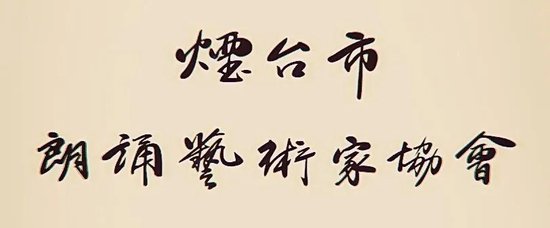 煙台市
朗誦藝術家協會